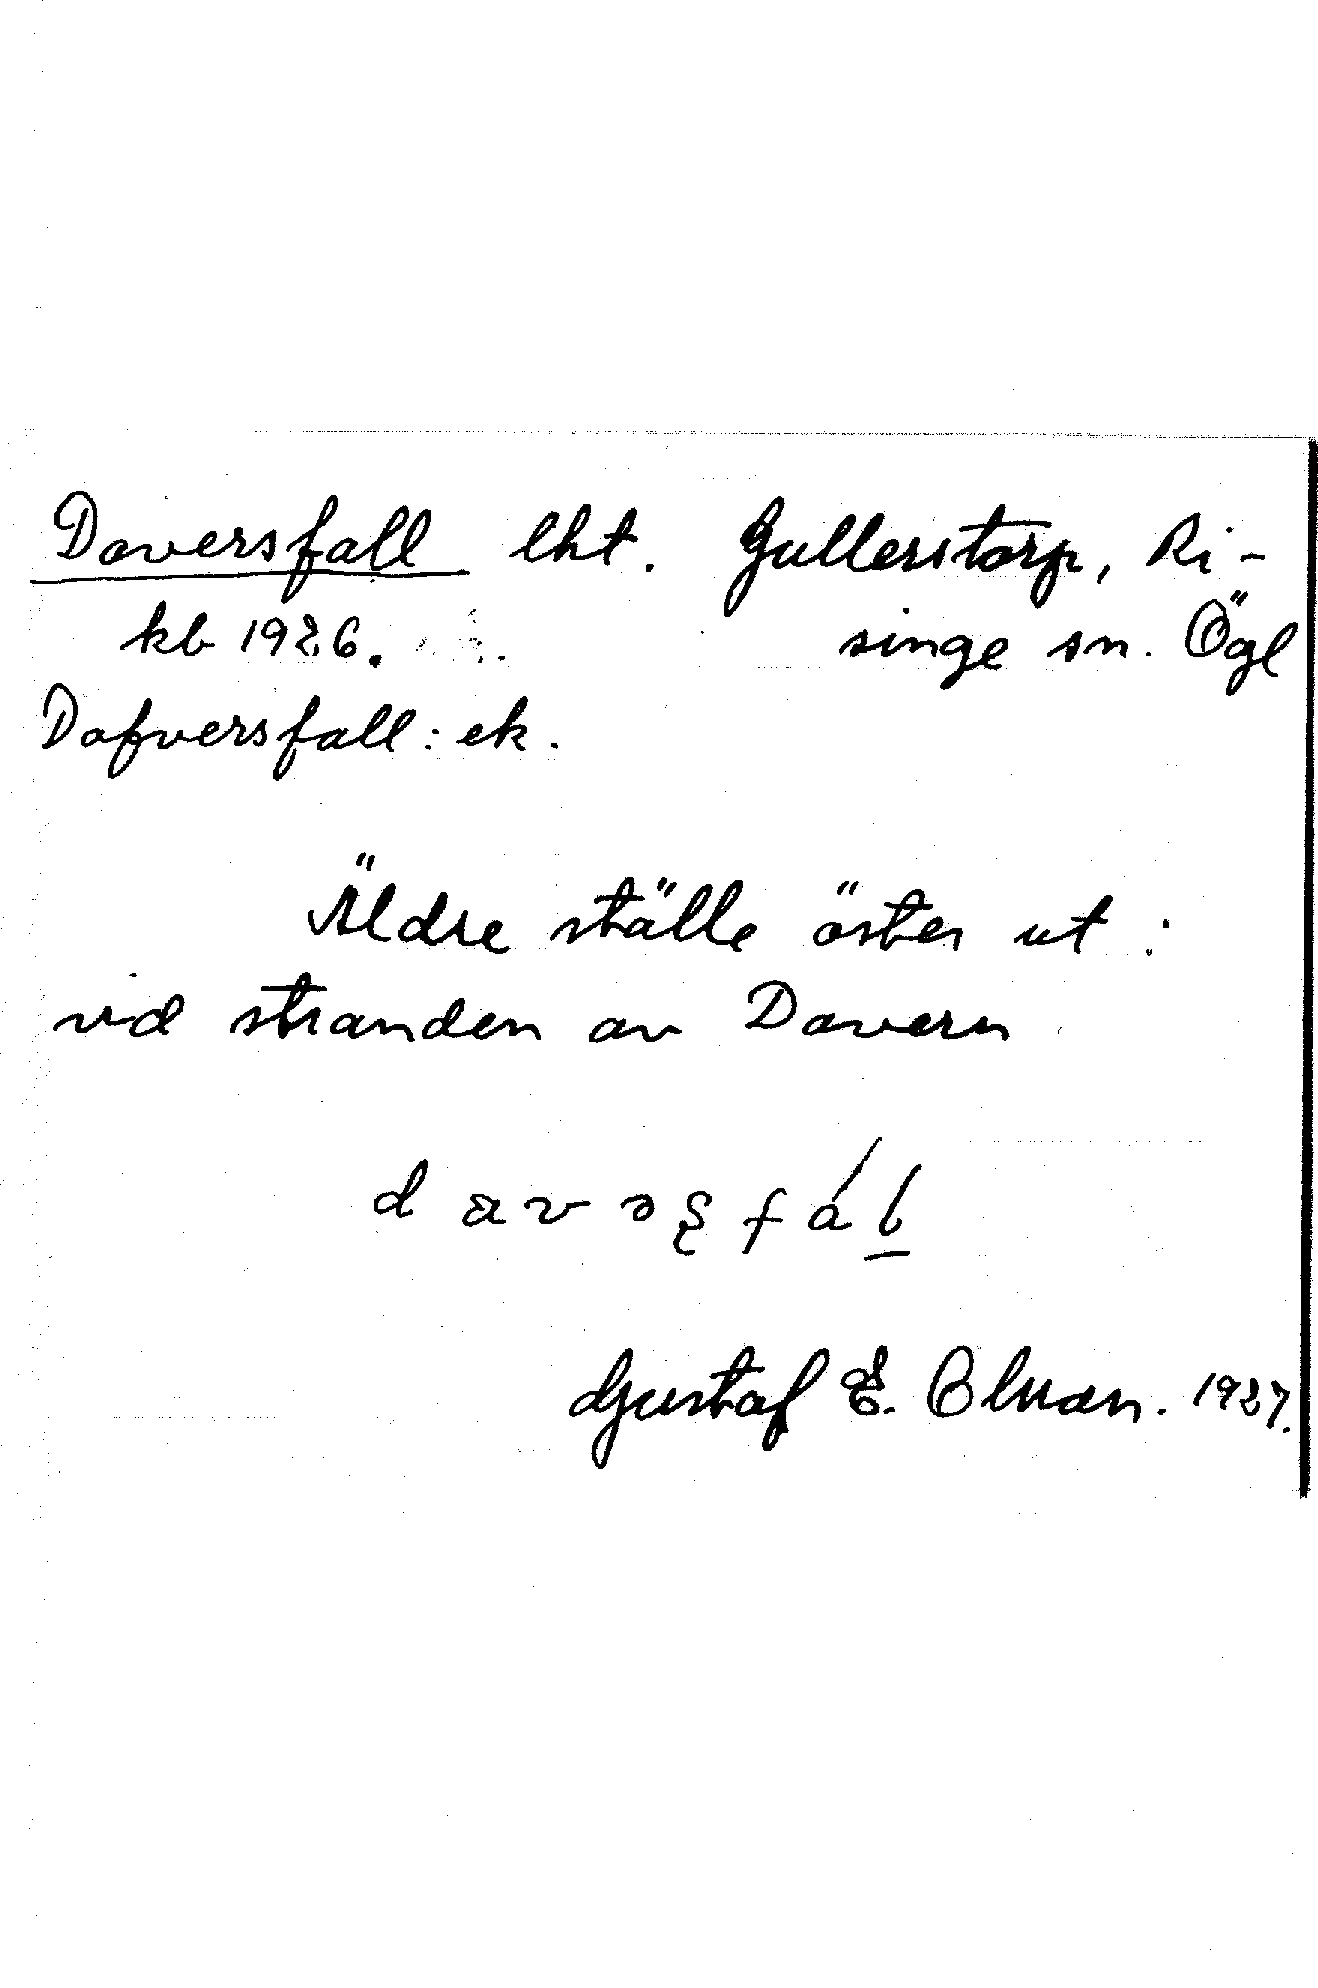 Daversfall lht. Gullerstorp, Ri-
kb 1926. singe sn. Ögl
Dafversfall: ek.
Äldre ställe öster ut:
vid stranden av Davern
Gustaf E. 1927.